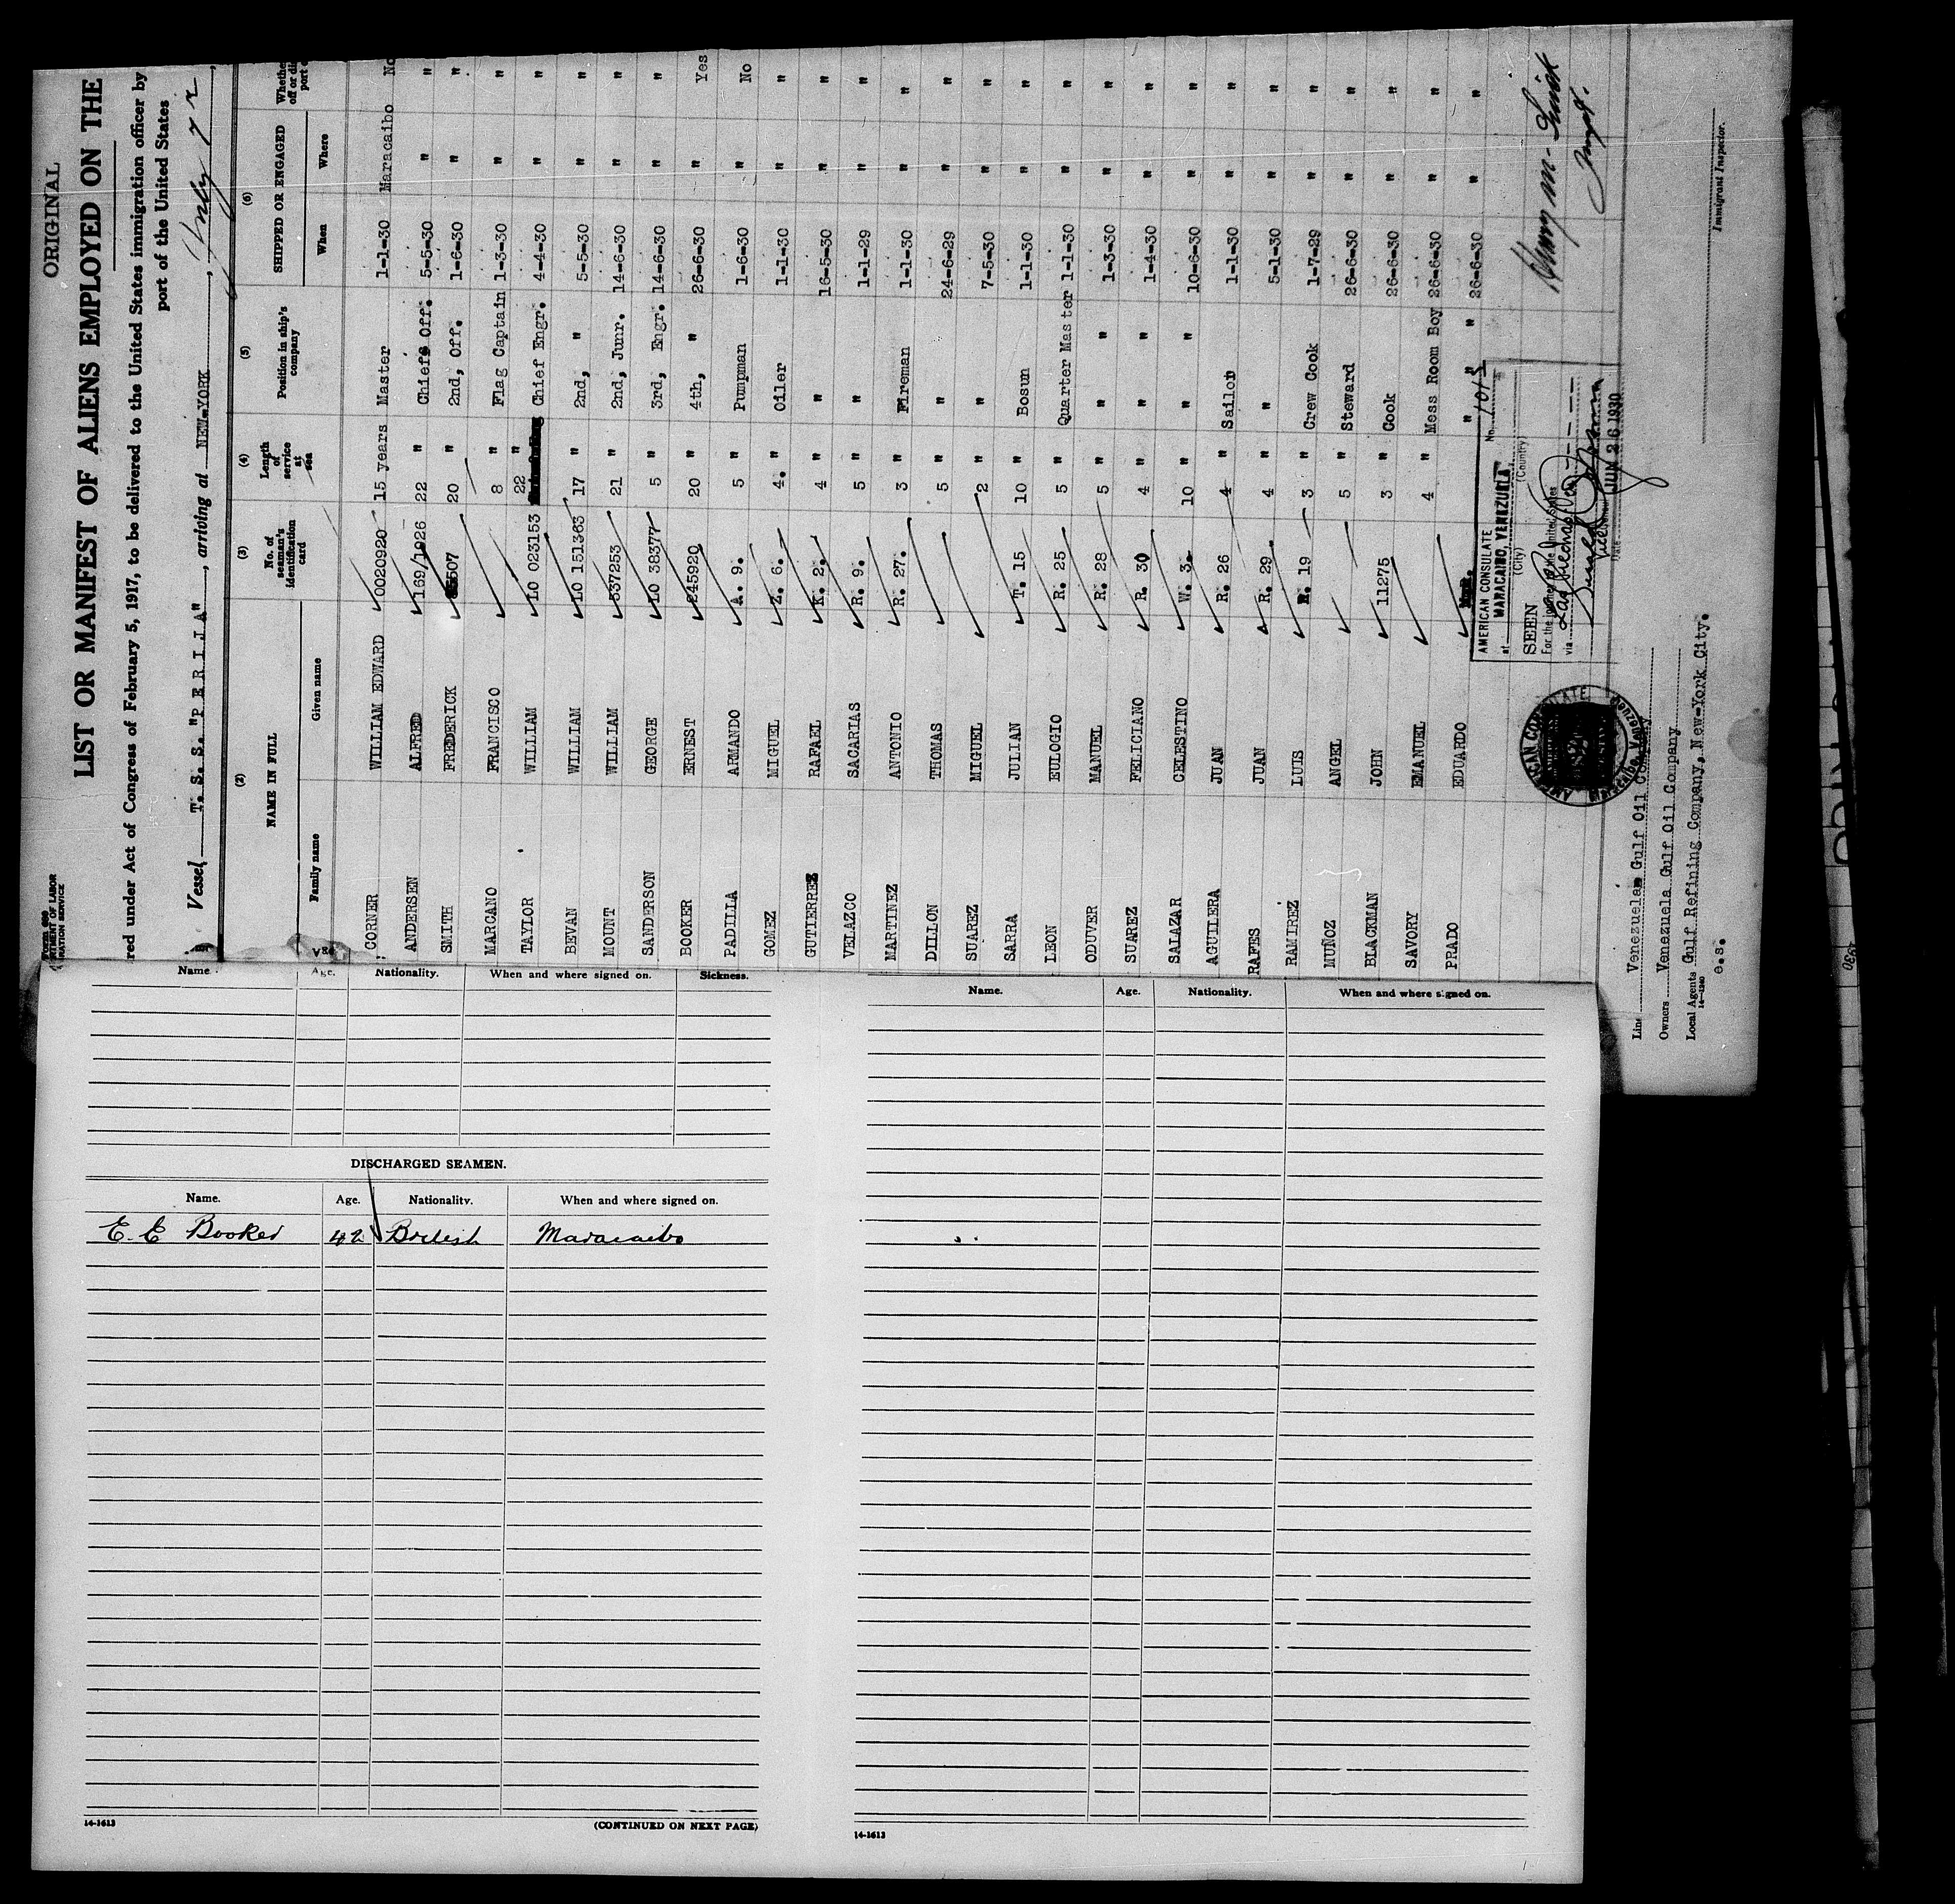 ORIGINAL
LIST OR MANIFEST OF ALIENS EMPLOYED ON THE
red under Act of Congress of February 5, 1917, to be delivered to the United States immigration officer by
port of the United States
Vessel T. S. S. "PERIJA", arriving at NEW-YORK, July 7
(2) (3) (4) (5) (6)
NAME IN FULL No. of seaman's identification card Length of service at sea Position in ship's company SHIPPED OR ENGAGED
Family name Given name When Where
CORNER WILLIAM EDWARD 0020920 15 years Master 1-1-30 Maracaibo No
ANDERSEN ALFRED 189/1926 22 " Chief Off. 5-5-30 " "
SMITH FREDERICK 20 2nd, Off. 1-6-30 " "
MARCANO FRANCISCO 8 " Flag Captain 1-3-30 " "
TAYLOR WILLIAM LO 023153 22 " Chief Engr. 4-4-30 " "
BEVAN WILLIAM LO 151363 17 " 2nd, " 5-5-30 " "
MOUNT WILLIAM 537253 21 " 2nd, Junr. 14-6-30 " "
SANDERSON GEORGE LO 38377 5 " 3rd, Engr. 14-6-30 " "
BOOKER ERNEST 245920 20 " 4th, " 26-6-30 " Yes
PADILLA ARMANDO A. 9. 5 " Pumpman 1-6-30 " No
GOMEZ MIGUEL Z. 6. 4. " Oiler 1-1-30 " "
GUTIERREZ RAFAEL K. 2. 4 " " 16-5-30 " "
VELAZCO SACARIAS R. 9. 5 " " 1-1-29 " "
MARTINEZ ANTONIO R. 27. 3 " Fireman 1-1-30 " "
DILLON THOMAS 5 " " 24-6-29 " "
SUAREZ MIGUEL 2 " " 7-5-30 " "
SARRA JULIAN T. 15 10 " Bosun 1-1-30 " "
LEON EULOGIO R. 25 5 " Quarter Master 1-1-30 " "
ODUVER MANUEL R. 28 5 " " 1-3-30 " "
SUAREZ FELICIANO R. 30 4 " " 1-4-30 " "
SALAZAR CELESTINO W. 3. 10 " " 10-6-30 " "
AGUILERA JUAN R. 26 4 " Sailor 1-1-30 " "
RAFES JUAN R. 29 4 " " 5-1-30 " "
RAMIREZ LUIS R. 19 3 " Crew Cook 1-7-29 " "
MUÑOZ ANGEL 5 " Steward 26-6-30 " "
BLACKMAN JOHN 11275 3 " Cook 26-6-30 " "
SAVORY EMANUEL 4 " Mess Room Boy 26-6-30 " "
PRADO EDUARDO " " " 26-6-30 " "
AMERICAN CONSULATE No. 1013
at MARACAIBO, VENEZUELA
(City) (Country)
SEEN
For the journey to the United States
via Las Piedras Ven
Date JUN 26 1930
Line Venezuelan Gulf Oil Company
Owners Venezuela Gulf Oil Company
Local Agents Gulf Refining Company, New-York City.
14—1240
e.s.
Immigrant Inspector.
Name. Age. Nationality. When and where signed on. Sickness.
DISCHARGED SEAMEN.
Name. Age. Nationality. When and where signed on.
E. E Booker 42 British Maracaibo
14-1613 (CONTINUED ON NEXT PAGE)
Name. Age. Nationality. When and where signed on.
14-1613